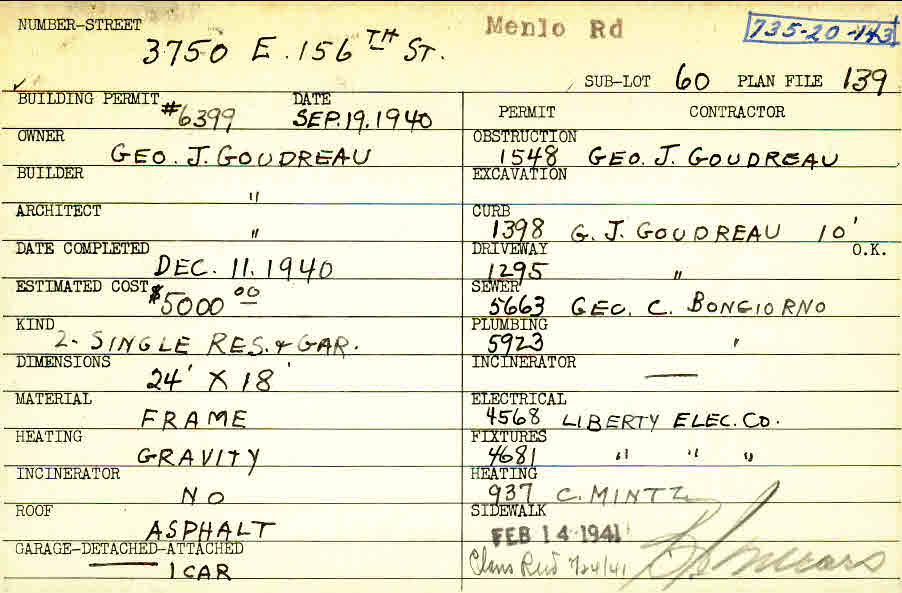 NUMBER-STREET
3750 E. 156TH ST.
Menlo Rd
735-20-143
SUB-LOT 60 PLAN FILE 139
BUILDING PERMIT #6399
DATE SEP. 19. 1940
OWNER
GEO. J. GOUDREAU
BUILDER
"
ARCHITECT
"
DATE COMPLETED
DEC. 11. 1940
ESTIMATED COST $5000 00
KIND
2- SINGLE RES. & GAR.
DIMENSIONS
24' X 18'
MATERIAL
FRAME
HEATING
GRAVITY
INCINERATOR
NO
ROOF
ASPHALT
GARAGE-DETACHED-ATTACHED
1 CAR
PERMIT CONTRACTOR
OBSTRUCTION
1548 GEO. J. GOUDREAU
EXCAVATION
CURB
1398 G. J. GOUDREAU 10'
DRIVEWAY O.K.
1295 "
SEWER
5663 GEO. C. BONGIORNO
PLUMBING
5923 "
INCINERATOR
ELECTRICAL
4568 LIBERTY ELEC. CO.
FIXTURES
4681 " " "
HEATING
937 C. MINTZ
SIDEWALK
FEB 14 1941
7/24/41